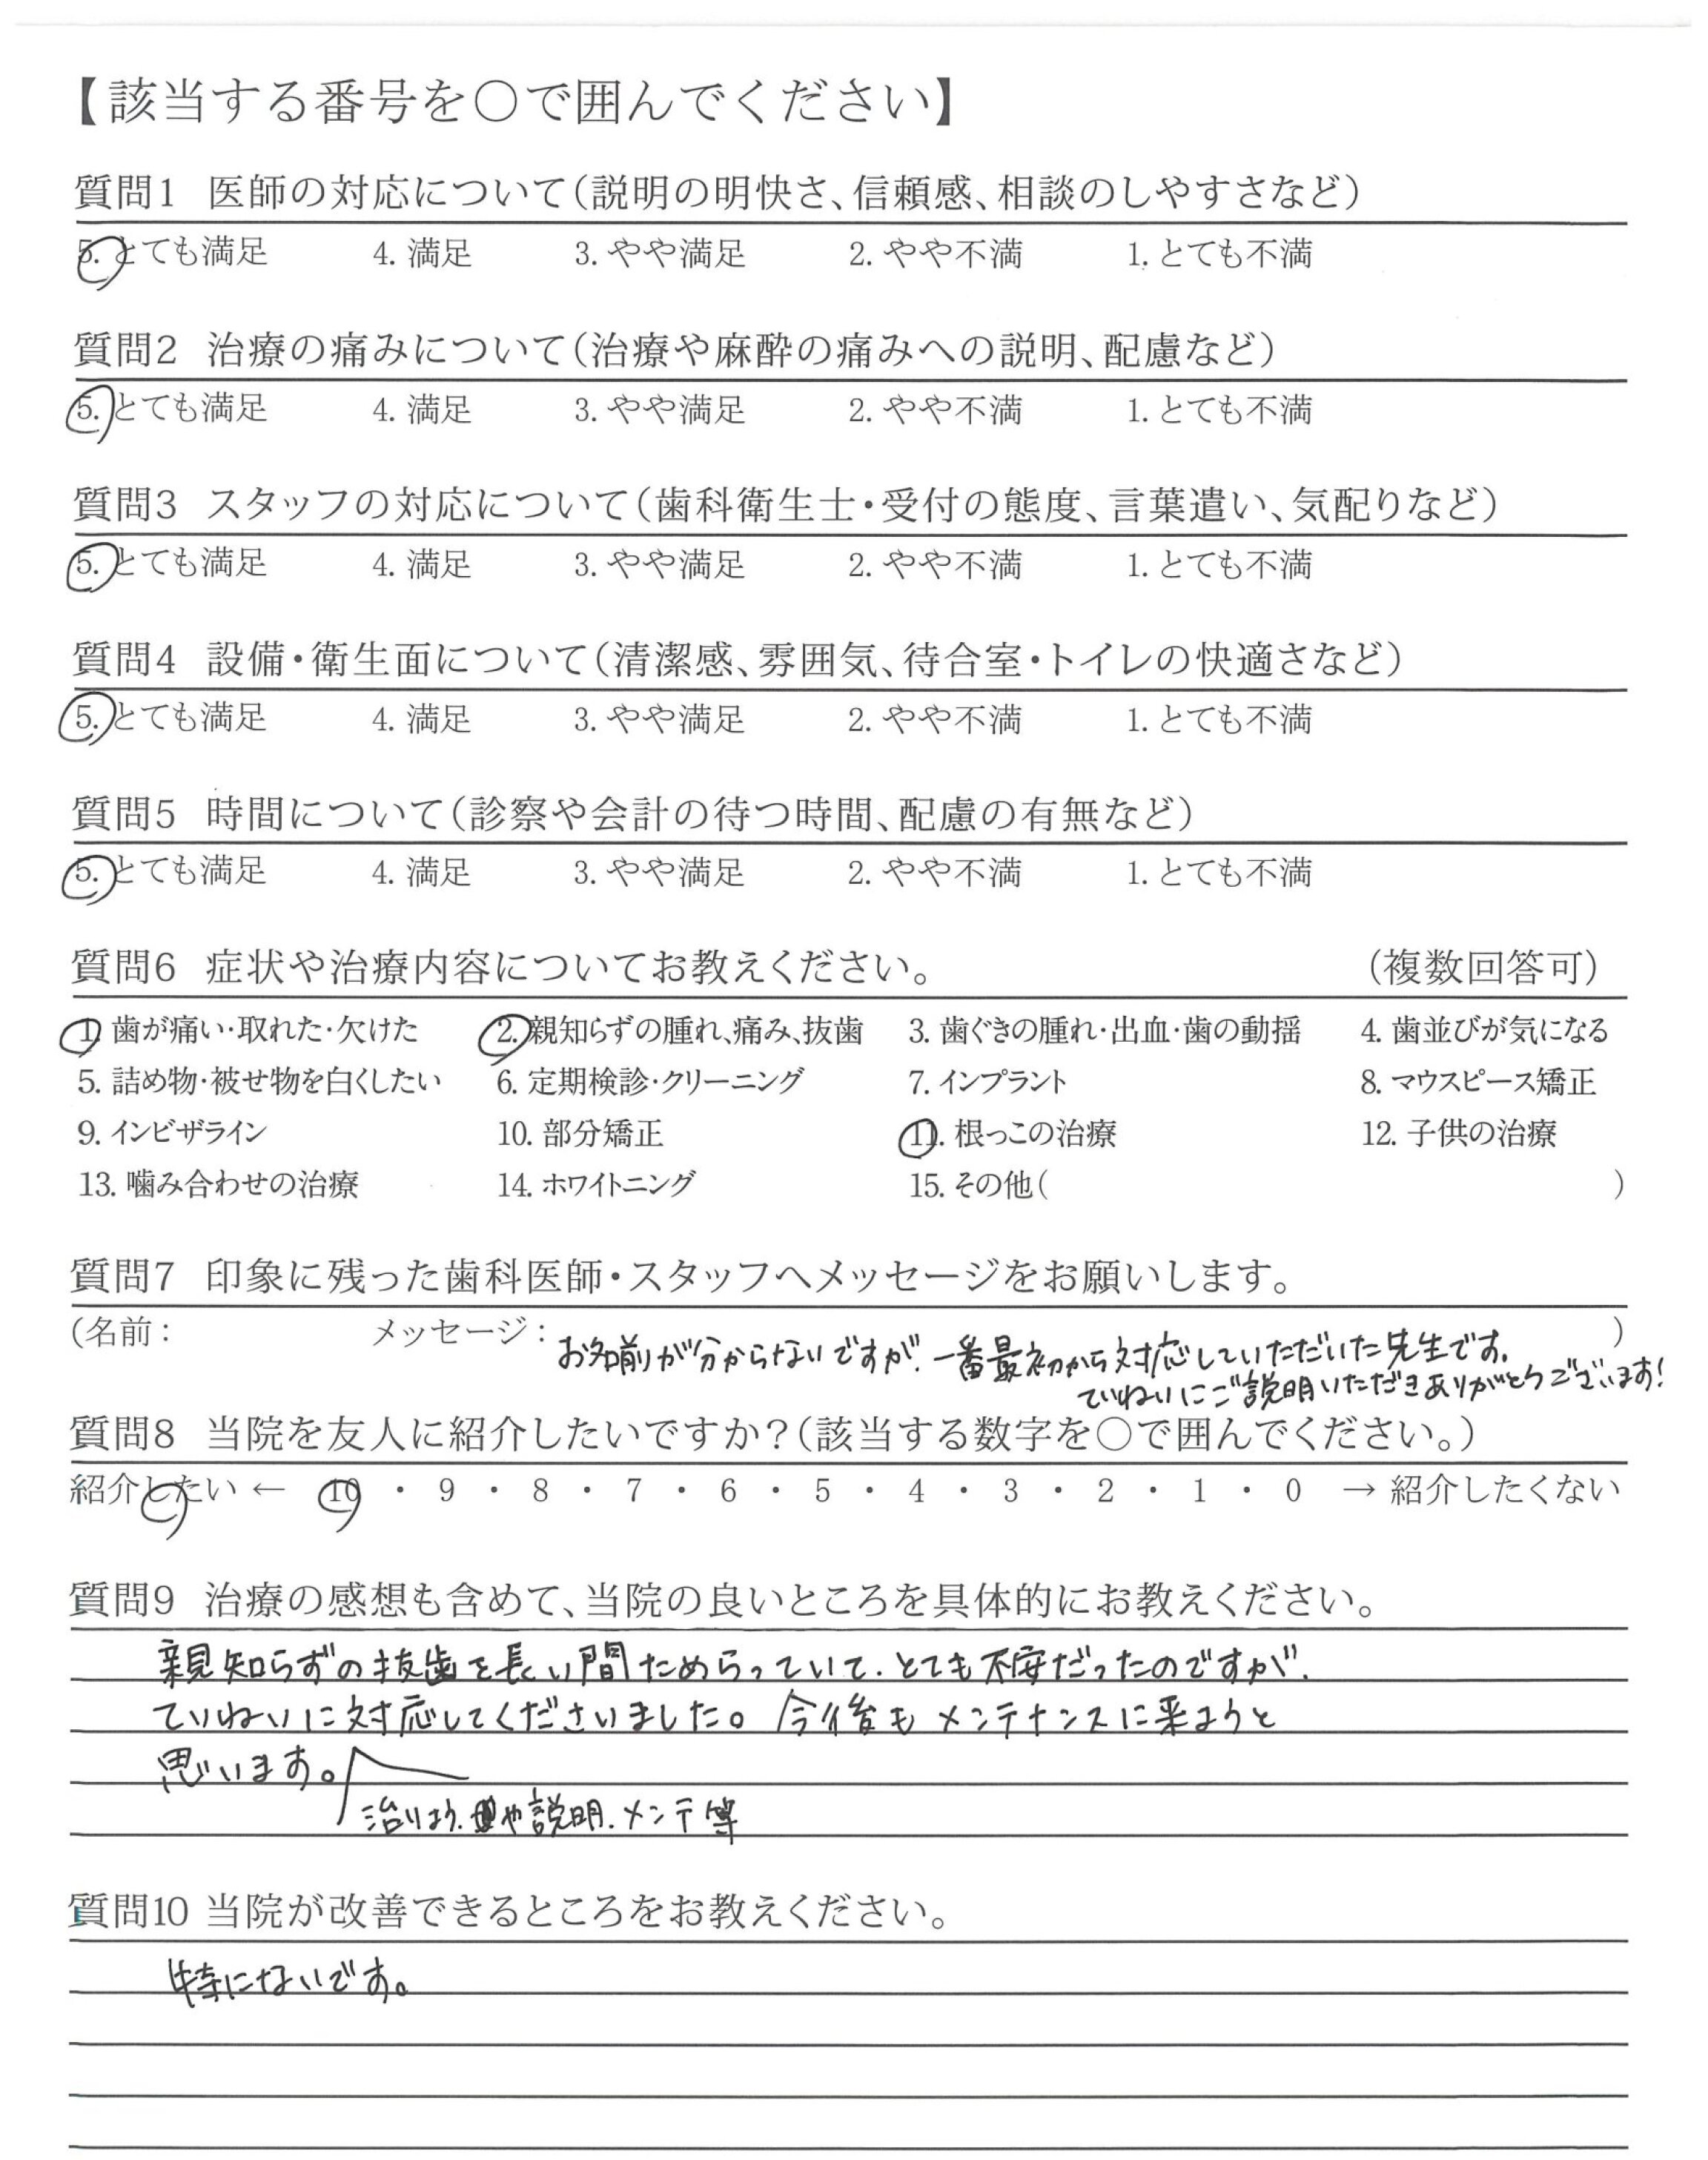 【該当する番号を〇で囲んでください】
質問1 医師の対応について（説明の明快さ、信頼感、相談のしやすさなど）
5. とても満足 4. 満足 3. やや満足 2. やや不満 1. とても不満
質問2 治療の痛みについて（治療や麻酔の痛みへの説明、配慮など）
5. とても満足 4. 満足 3. やや満足 2. やや不満 1. とても不満
質問3 スタッフの対応について（歯科衛生士・受付の態度、言葉遣い、気配りなど）
5. とても満足 4. 満足 3. やや満足 2. やや不満 1. とても不満
質問4 設備・衛生面について（清潔感、雰囲気、待合室・トイレの快適さなど）
5. とても満足 4. 満足 3. やや満足 2. やや不満 1. とても不満
質問5 時間について（診察や会計の待つ時間、配慮の有無など）
5. とても満足 4. 満足 3. やや満足 2. やや不満 1. とても不満
質問6 症状や治療内容についてお教えください。 （複数回答可）
1. 歯が痛い・取れた・欠けた 2. 親知らずの腫れ、痛み、抜歯 3. 歯ぐきの腫れ・出血・歯の動揺 4. 歯並びが気になる
5. 詰め物・被せ物を白くしたい 6. 定期検診・クリーニング 7. インプラント 8. マウスピース矯正
9. インビザライン 10. 部分矯正 11. 根っこの治療 12. 子供の治療
13. 噛み合わせの治療 14. ホワイトニング 15. その他（ ）
質問7 印象に残った歯科医師・スタッフへメッセージをお願いします。
（名前： メッセージ： お名前が分からないですが、一番最初から対応していただいた先生です。 ）
ていねいにご説明いただきありがとうございます！
質問8 当院を友人に紹介したいですか？（該当する数字を〇で囲んでください。）
紹介したい ← 10 ・ 9 ・ 8 ・ 7 ・ 6 ・ 5 ・ 4 ・ 3 ・ 2 ・ 1 ・ 0 → 紹介したくない
質問9 治療の感想も含めて、当院の良いところを具体的にお教えください。
親知らずの抜歯を長い間ためらっていて、とても不安だったのですが、
ていねいに対応してくださいました。今後もメンテナンスに来ようと
思います。
治りょう、や説明、メンテ等
質問10 当院が改善できるところをお教えください。
特にないです。